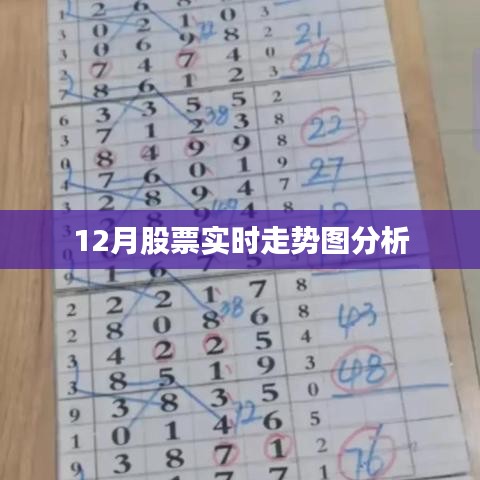 0 2 1 0 3
3 0 6 9 8 2 21
7 4 7 4 0 26
7 8 6 1 2 3
6 3 3 5 5 2
3 7 1 2 38 3 8 22
0 8 4 9 9 8
7 6 0 1 9 27
2 8 9 4 7
12月股票实时走势图分析
2 2 2 1 7 8
2 8 0 8 38 6 8 43
3 4 2 2 5 4
3 8 5 1 9 3 48
9 3 8 3 5 0
1 0 1 4 6 5
9 3 8 7 1 2 76